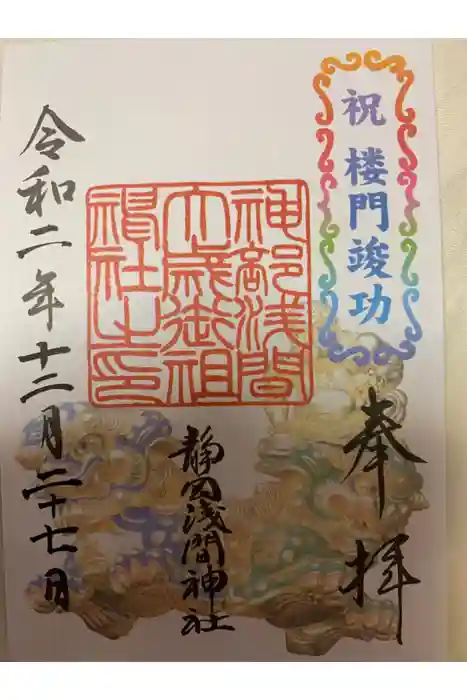 祝 楼門竣功
奉拝
神部浅間
大歳御祖
神社之印
静岡浅間神社
令和二年十二月二十七日